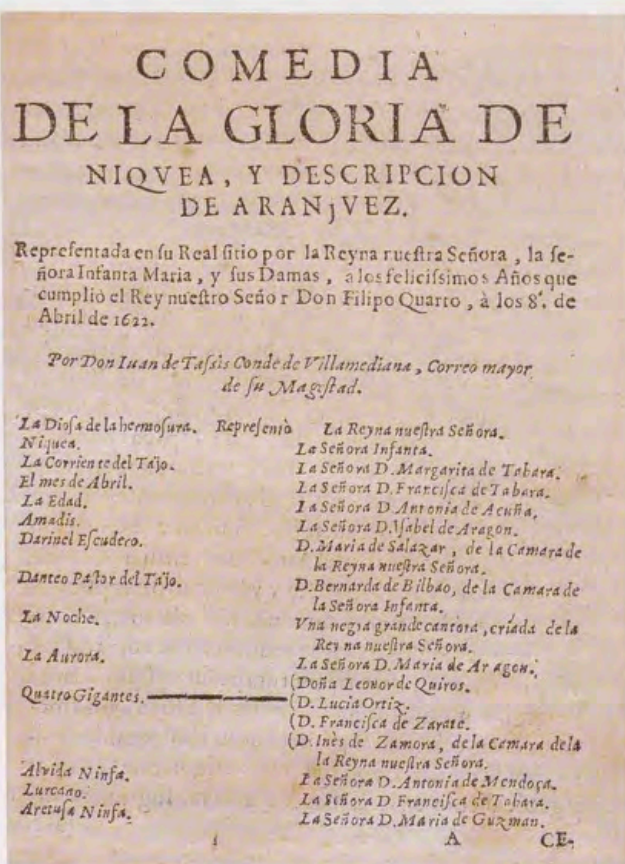 COMEDIA
DE LA GLORIA DE
NIQVEA, Y DESCRIPCION
DE ARANjVEZ.
Repreſentada en ſu Real ſitio por la Reyna rueſtra Señora, la ſe-
ñora Infanta Maria, y ſus Damas, a los feliciſsimos Años que
cumpliò el Rey nueſtro Señor Don Filipo Quarto, à los 8. de
Abril de 1622.
Por Don Iuan de Taſsis Conde de Villamediana, Correo mayor
de ſu Mageſtad.
La Dioſa de la hermoſura. Repreſentò La Reyna nueſtra Señora.
Niquea. La Señora Infanta.
La Corriente del Tajo. La Señora D. Margarita de Tabara.
El mes de Abril. La Señora D. Franciſca de Tabara.
La Edad. La Señora D. Antonia de Acuña.
Amadis. La Señora D. Yſabel de Aragon.
Darinel Eſcudero. D. Maria de Salazar, de la Camara de
la Reyna nueſtra Señora.
Danteo Paſtor del Tajo. D. Bernarda de Bilbao, de la Camara de
la Señora Infanta.
La Noche. Vna negra grande cantora, criada de la
Reyna nueſtra Señora.
La Aurora. La Señora D. Maria de Aragon.
Quatro Gigantes. (Doña Leonor de Quiros.
(D. Lucia Ortiz.
(D. Franciſca de Zarate.
(D. Inès de Zamora, de la Camara de la
la Reyna nueſtra Señora.
Alvida Ninfa. La Señora D. Antonia de Mendoça.
Lurcano. La Señora D. Franciſca de Tabara.
Aretuſa Ninfa. La Señora D. Maria de Guzman.
A CE-